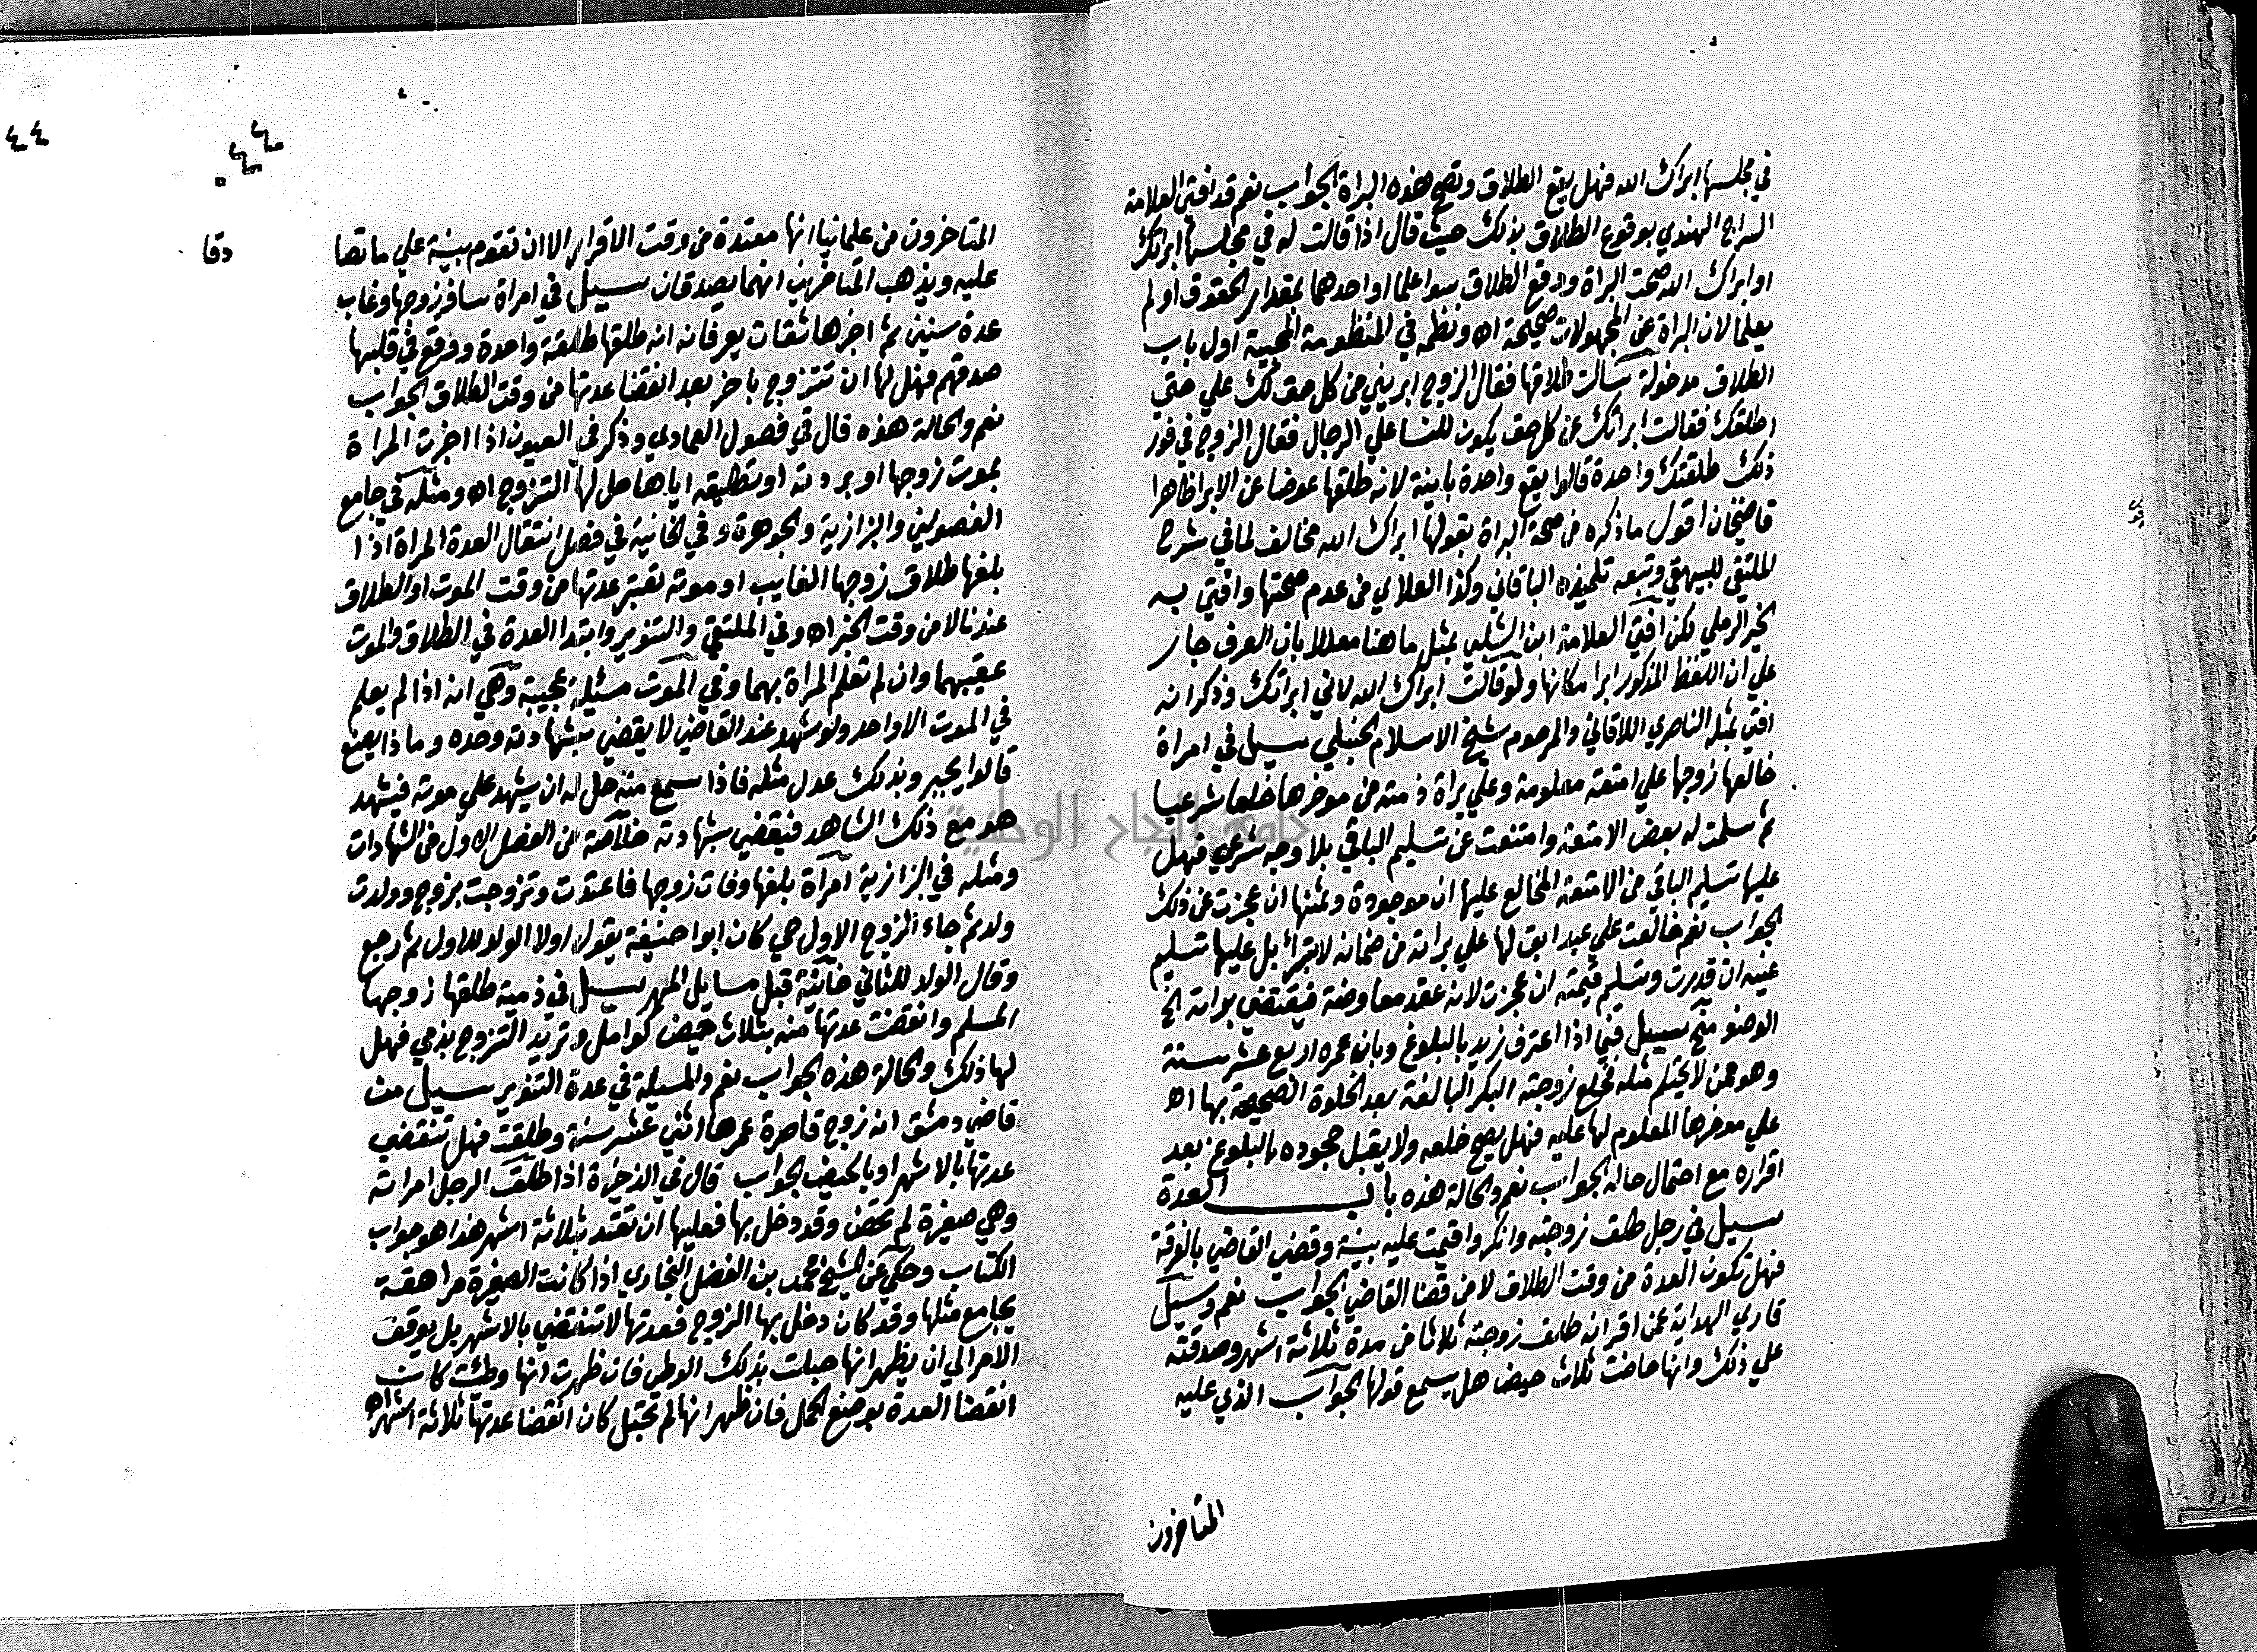 في مجلسها ابراك الله فهل يقع الطلاق وتصح هذه البراة الجواب نعم قد افتى العلامة
السراج الهندي بوقوع الطلاق بذلك حيث قال اذا قالت له في مجلسها ابراتك
او ابراك الله صحت البراة ووقع الطلاق سوا علما او احدهما بمقدار الحقوق او لم
يعلما لان البراة عن المجهولات صحيحة اه ونظمه في المنظومة المحبية اول باب
الطلاق مدخولة سالت طلاقها فقال الزوج ابريني من كل حق لك علي حتي
اطلقك فقالت ابراتك عن كل حق يكون للنسا علي الرجال فقال الزوج في فور
ذلك طلقتك واحدة قالوا يقع واحدة باينة لانه طلقها عوضا عن الابرا ظاهرا
قاضيخان اقول ما ذكره من صحة البراة بقولها ابراك الله مخالف لما في شرح
الملتقى للبهنسي وتبعه تلميذه الباقاني وكذا العلاي من عدم صحتها وافتي به
الخير الرملي لكن افتى العلامة ابن الشلبي بمثل ما هنا معللا بان العرف جار
علي ان اللفظ المذكور ابرا مكانها ولو قالت ابراك الله لاني ابراتك وذكر انه
افتي بمثله الناصري اللاقاني والمرحوم شيخ الاسلام الحنبلي سيل في امراة
خالعها زوجها علي امتعة معلومة وعلي براة ذمته من موخرها خلعا شرعيا
ثم سلمت له بعض الامتعة وامتنعت عن تسليم الباقي بلا وجه شرعي فهل
عليها تسليم الباقي من الامتعة المخالع عليها ان موجودة وثمنها ان عجزت عن ذلك
الجواب نعم خالعت علي عبد ابق لها علي براته من ضمانه لا تبرأ بل عليها تسليم
عينه ان قدرت وتسليم قيمته ان عجزت لانه عقد معاوضة فيقتضي براته الخ
العوض منح سيل في اذا اعترف زيد بالبلوغ وبان عمره اربع عشر سنة
وهو ممن لا يحتلم مثله فخلع زوجته البكر البالغة بعد الخلوة الصحيحة بها اه
علي موخرها المعلوم لها عليه فهل يصح خلعه ولا يقبل جحوده بالبلوغ بعد
اقراره مع احتمال حاله الجواب نعم والحالة هذه باب العدة
سيل في رجل طلق زوجته وانكر واقيمت عليه بينة وقضي القاضي بالفرقة
فهل تكون العدة من وقت الطلاق لا من قضا القاضي الجواب نعم وسيل
قاري الهداية عمن اقر انه طلق زوجته ثلاثا من مدة ثلاثة اشهر وصدقته
علي ذلك وانها حاضت ثلاث حيض هل يسمع قولها الجواب الذي عليه
المتاخرون
٤٤
٤٤
دقا
المتاخرون من علمائنا انها معتدة من وقت الاقرار الا ان تقوم بينة علي ما تصا
عليه ومذهب المتاخرين انهما يصدقان سيل في امراة سافر زوجها وغاب
عدة سنين ثم اخبرها ثقات يعرفانه انه طلقها طلقة واحدة ووقع في قلبها
صدقهم فهل لها ان تتزوج باخر بعد انقضا عدتها من وقت الطلاق الجواب
نعم والحالة هذه قال في فصول العمادي وذكر في العيون اذا اخبرت المراة
بموت زوجها او بردته او تطليقه اياها حل لها التزوج اه ومثله في جامع
الفصولين والبزازية والجوهرة وفي الخانية في فصل انتقال العدة المراة اذا
بلغها طلاق زوجها الغايب او موته تعتبر عدتها من وقت الموت او الطلاق
عندنا لا من وقت الخبر اه وفي الملتقى والتنوير وابتدا العدة في الطلاق والموت
عقيبهما وان لم تعلم المراة بهما وفي الموت مسئلة عجيبة وهي انه اذا لم يعلم
في الموت الا واحد ولو شهد عند القاضي لا يقضي بشهادته وحده وما ذا يصنع
قالوا يخبر بذلك عدل مثله فاذا سمع منه حل له ان يشهد علي موته فيشهد
هو مع ذلك الشاهد فيقضي بشهادته خلاصة من الفصل الاول من الشهادات
ومثله في البزازية امراة بلغها وفات زوجها فاعتدت وتزوجت بزوج وولدت
ولد ثم جاء الزوج الاول حي كان ابو حنيفة يقول اولا الولد للاول ثم رجع
وقال الولد للثاني خانية قبل مسايل المهر سيل في ذمية طلقها زوجها
المسلم وانقضت عدتها منه بثلاث حيض كوامل وتريد التزوج بذمي فهل
لها ذلك والحالة هذه الجواب نعم والمسيلة في عدة التنوير سيل من
قاضي دمشق انه زوج قاصرة عمرها اثني عشر سنة وطلقت فهل تنقضي
عدتها بالاشهر او بالحيض الجواب قال في الذخيرة اذا طلق الرجل امراته
وهي صغيرة لم تحض وقد دخل بها فعليها ان تعتد بثلاثة اشهر هذا هو جواب
الكتاب وحكي عن الشيخ محمد بن الفضل البخاري اذا كانت الصغيرة مراهقة
يجامع مثلها وقد كان دخل بها الزوج فعدتها لا تنقضي بالاشهر بل يوقف
الامر الي ان يظهر انها حبلت بذلك الوطي فان ظهرت انها وطئت كانت
انقضا العدة بوضع الحمل فان ظهر انها لم تحبل كان انقضا عدتها ثلاثة اشهر اه
جامعة النجاح الوطنية